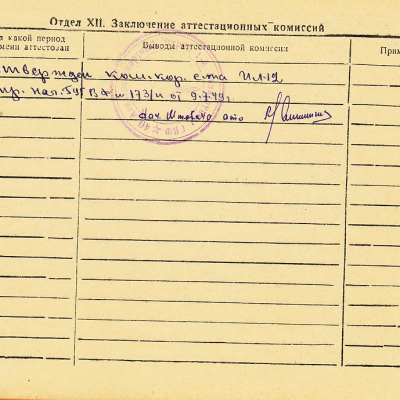 Отдел XII. Заключение аттестационных комиссий
а какой период
мени аттестован
Выводы аттестационной комиссии
Прим
тверждён ком. кор. с-та ИЛ-12
пр. нач. ГУГВФ № 173/л от 9.7.49 г.